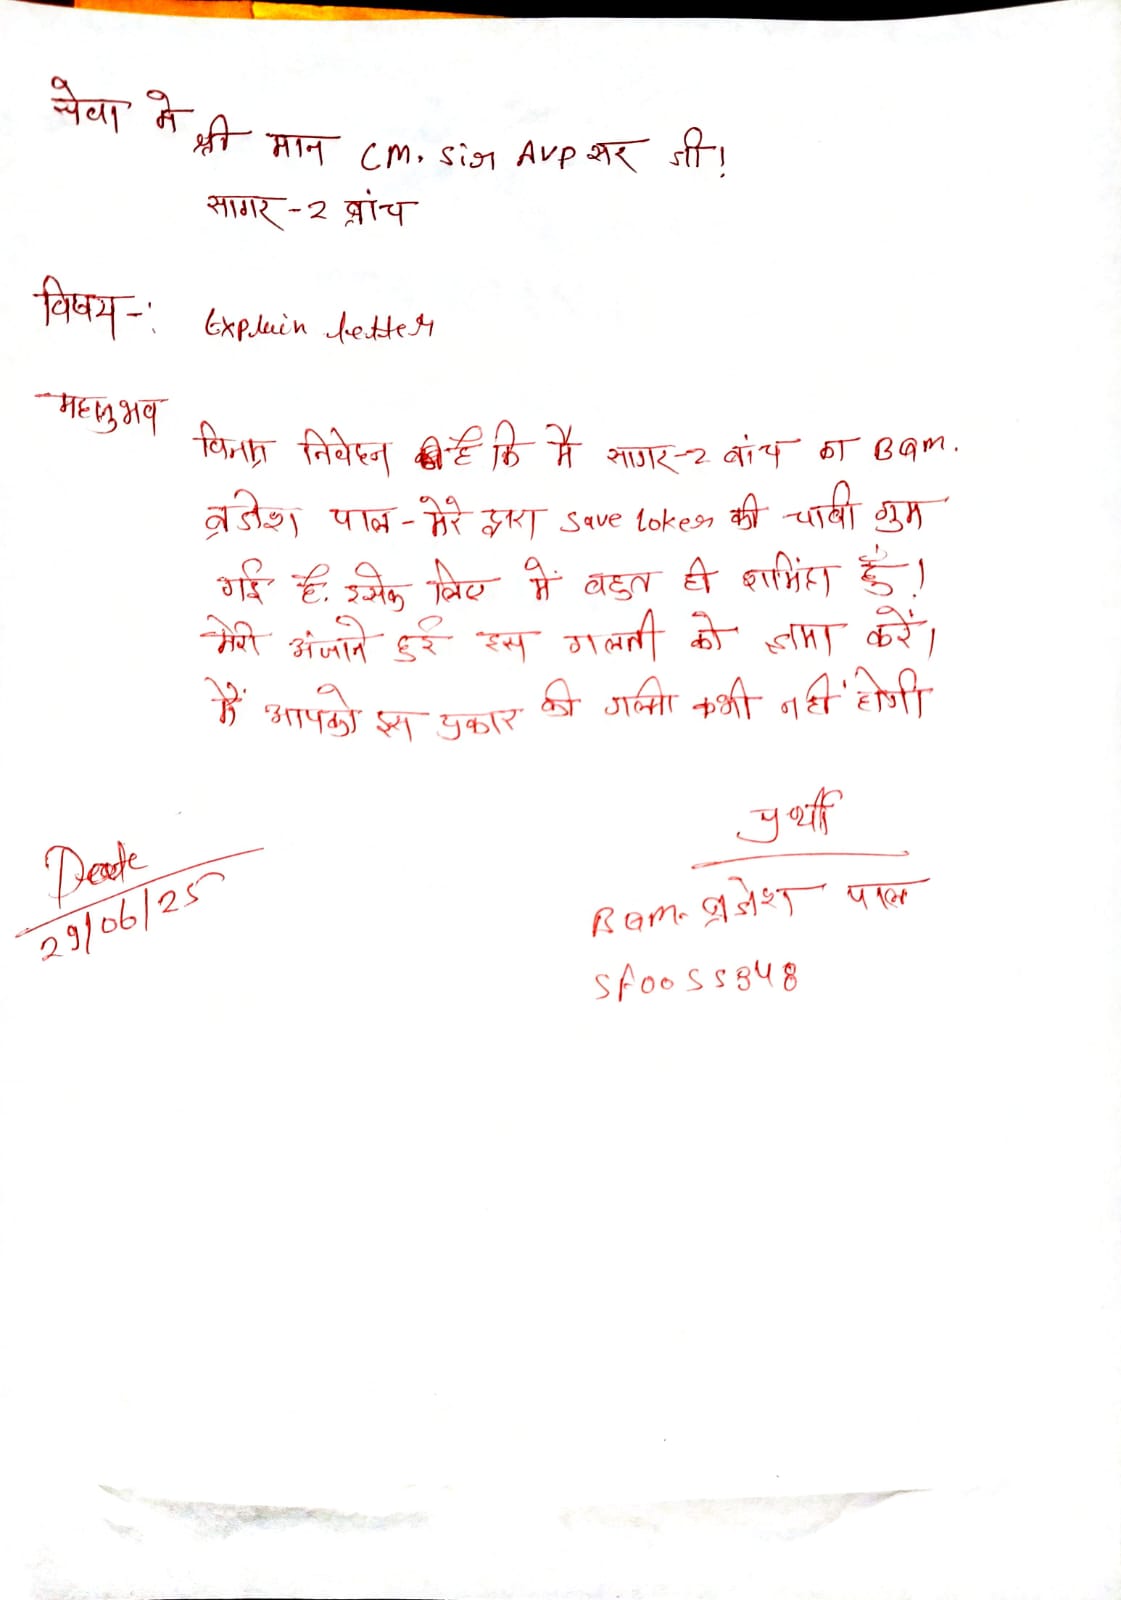 सेवा मे
श्री मान CM. Sir AVP सर जी!
सागर-2 ब्रांच
विषय-: Explain letter
महानुभव
विनम्र निवेदन है कि मैं सागर-2 ब्रांच का BQM.
ब्रजेश पाल - मेरे द्वारा save loker की चाबी गुम
गई है. इसके लिए में बहुत ही शर्मिंदा हुँ!
मेरी अंजाने हुई इस गलती को क्षमा करें।
मैं आपको इस प्रकार की गल्ती कभी नहीं होगी
प्रर्थी
BQM. ब्रजेश पाल
Sf0055348
Date
29/06/25